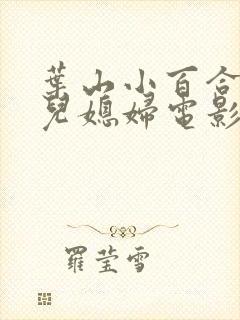 葉山小百合
兒媳婦電影
羅瑩雪